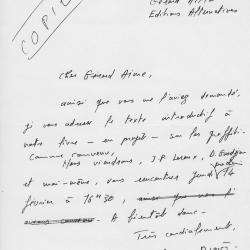 COPIE
Gérard Aimé
Editions Alternatives
Cher Gérard Aimé,
ainsi que vous me l'aviez demandé,
je vous adresse le texte introductif à
votre livre - en projet - sur les graffiti
comme convenu.
Nous viendrons, J.P. D.
et moi-même, vous rencontrer jeudi 14
prochain
février à 16 H 30, ainsi que nous l'
avions convenu - A bientôt donc -
Très cordialement,